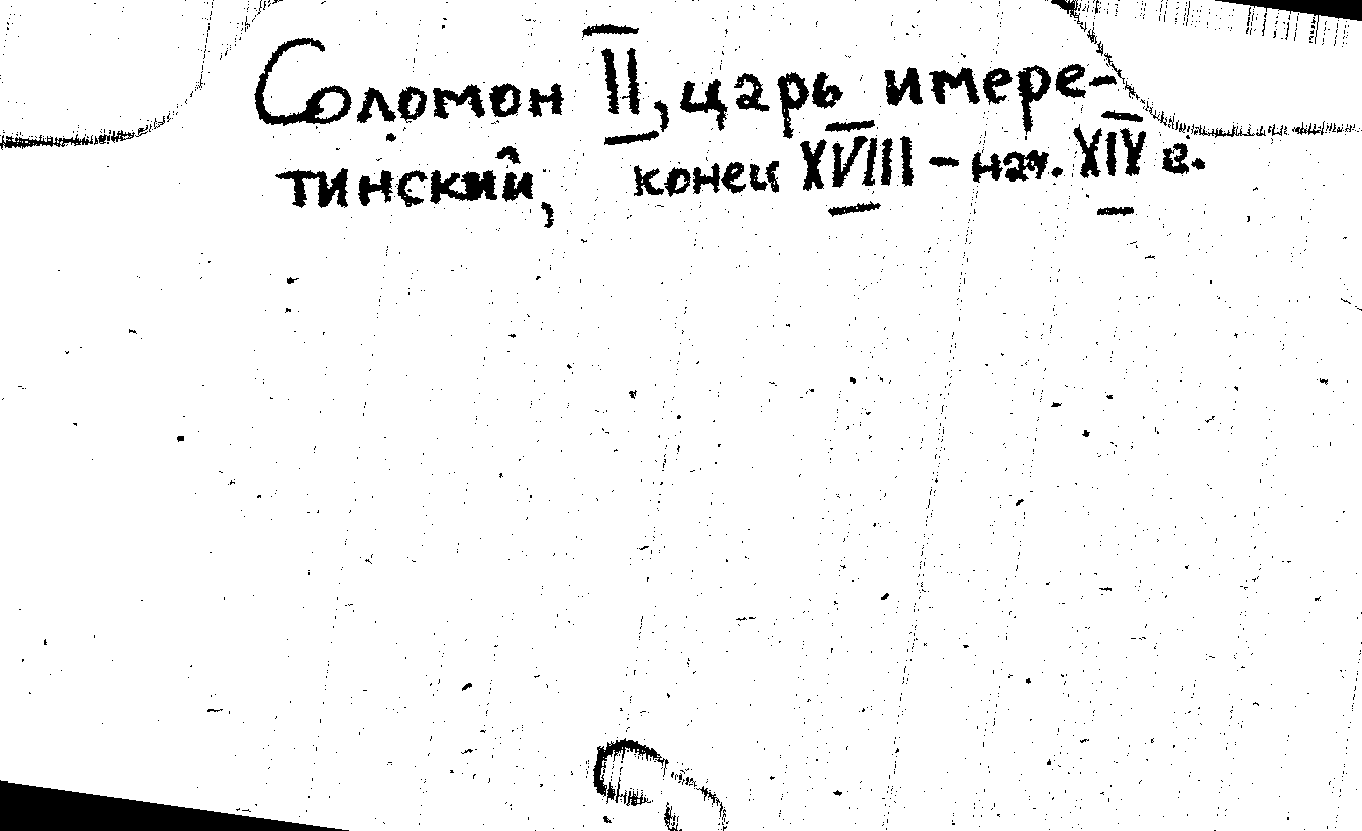 Соломон II, царь имере-
тинский, конец XVIII – нач. XIV в.